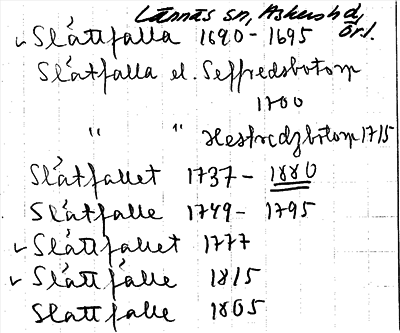 Lännäs sn, Askers hd,
Örl.
Slåttfalla 1690 - 1695
Slåtfalla el. Seffredsbotorp
1700
" " Hesfredzbotorp 1715
Slåtfallet 1737 - 1880
Slåtfalle 1749 - 1795
Slåttfallet 1777
Slåttfalle 1815
Slättfalle 1805